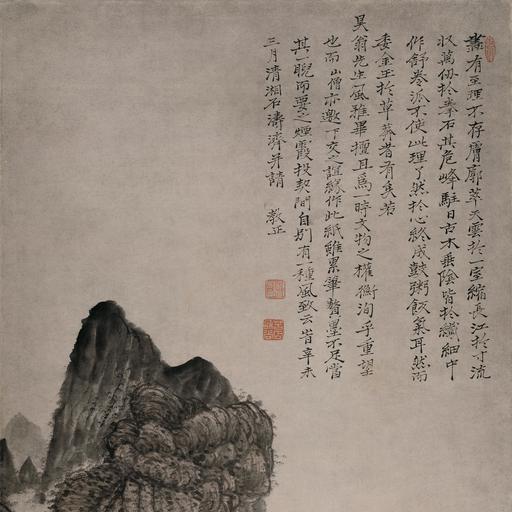 畫有至理不存膚廓萃天雲於一室縮長江於寸流
收萬仞於拳石其危峰駐日古木垂陰皆於纖細中
作舒卷派不使此理了然於心終成鼓粥飯氣耳然而
委金玉於草莽者有矣若
吴翁先生風雅畢擅且為一時文物之權衡洵乎重望
也而山僧亦邀下交之誼緣作此紙雖累筆贅墨不足當
其一睨而要之煙霞投契間自別有一種風致云皆辛未
三月清湘石濤濟并請 教正